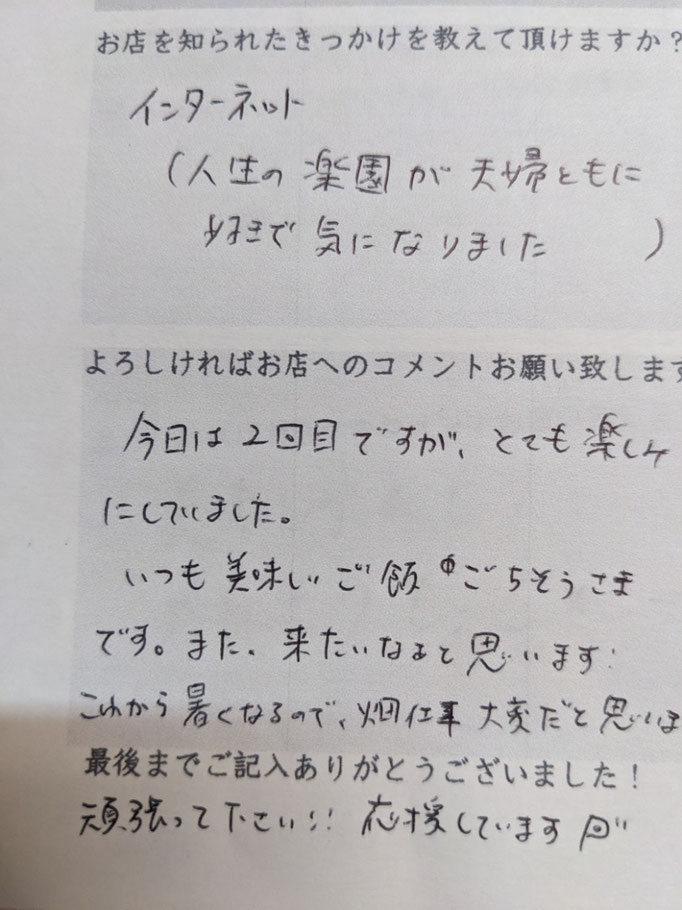 お店を知られたきっかけを教えて頂けますか?
インターネット
(人生の楽園が夫婦ともに
好きで気になりました )
よろしければお店へのコメントお願い致します
今日は2回目ですが、とても楽しみ
にしていました。
いつも美味しいご飯 ごちそうさま
です。また、来たいなぁと思います!
これから暑くなるので、畑仕事大変だと思いま
最後までご記入ありがとうございました!
頑張って下さい!! 応援しています